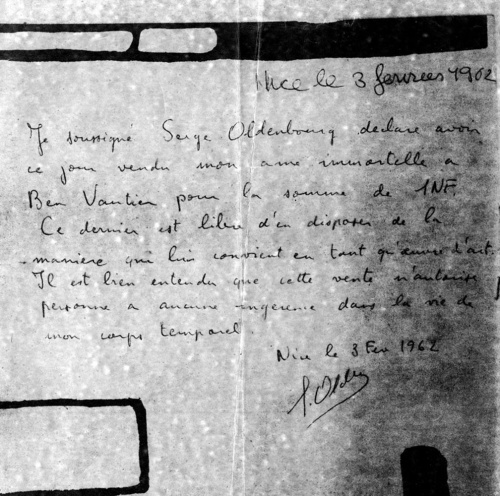 Nice le 3 fevrier 1962
Je soussigné Serge Oldenbourg declare avoir
ce jour vendu mon ame immortelle a
Ben Vautier pour la somme de 1NF.
Ce dernier est libre d'en disposer de la
maniere qui lui convient en tant qu'œuvre d'art.
Il est bien entendu que cette vente n'autorise
personne a aucune ingerence dans la vie de
mon corps temporel.
Nice le 3 Fev 1962